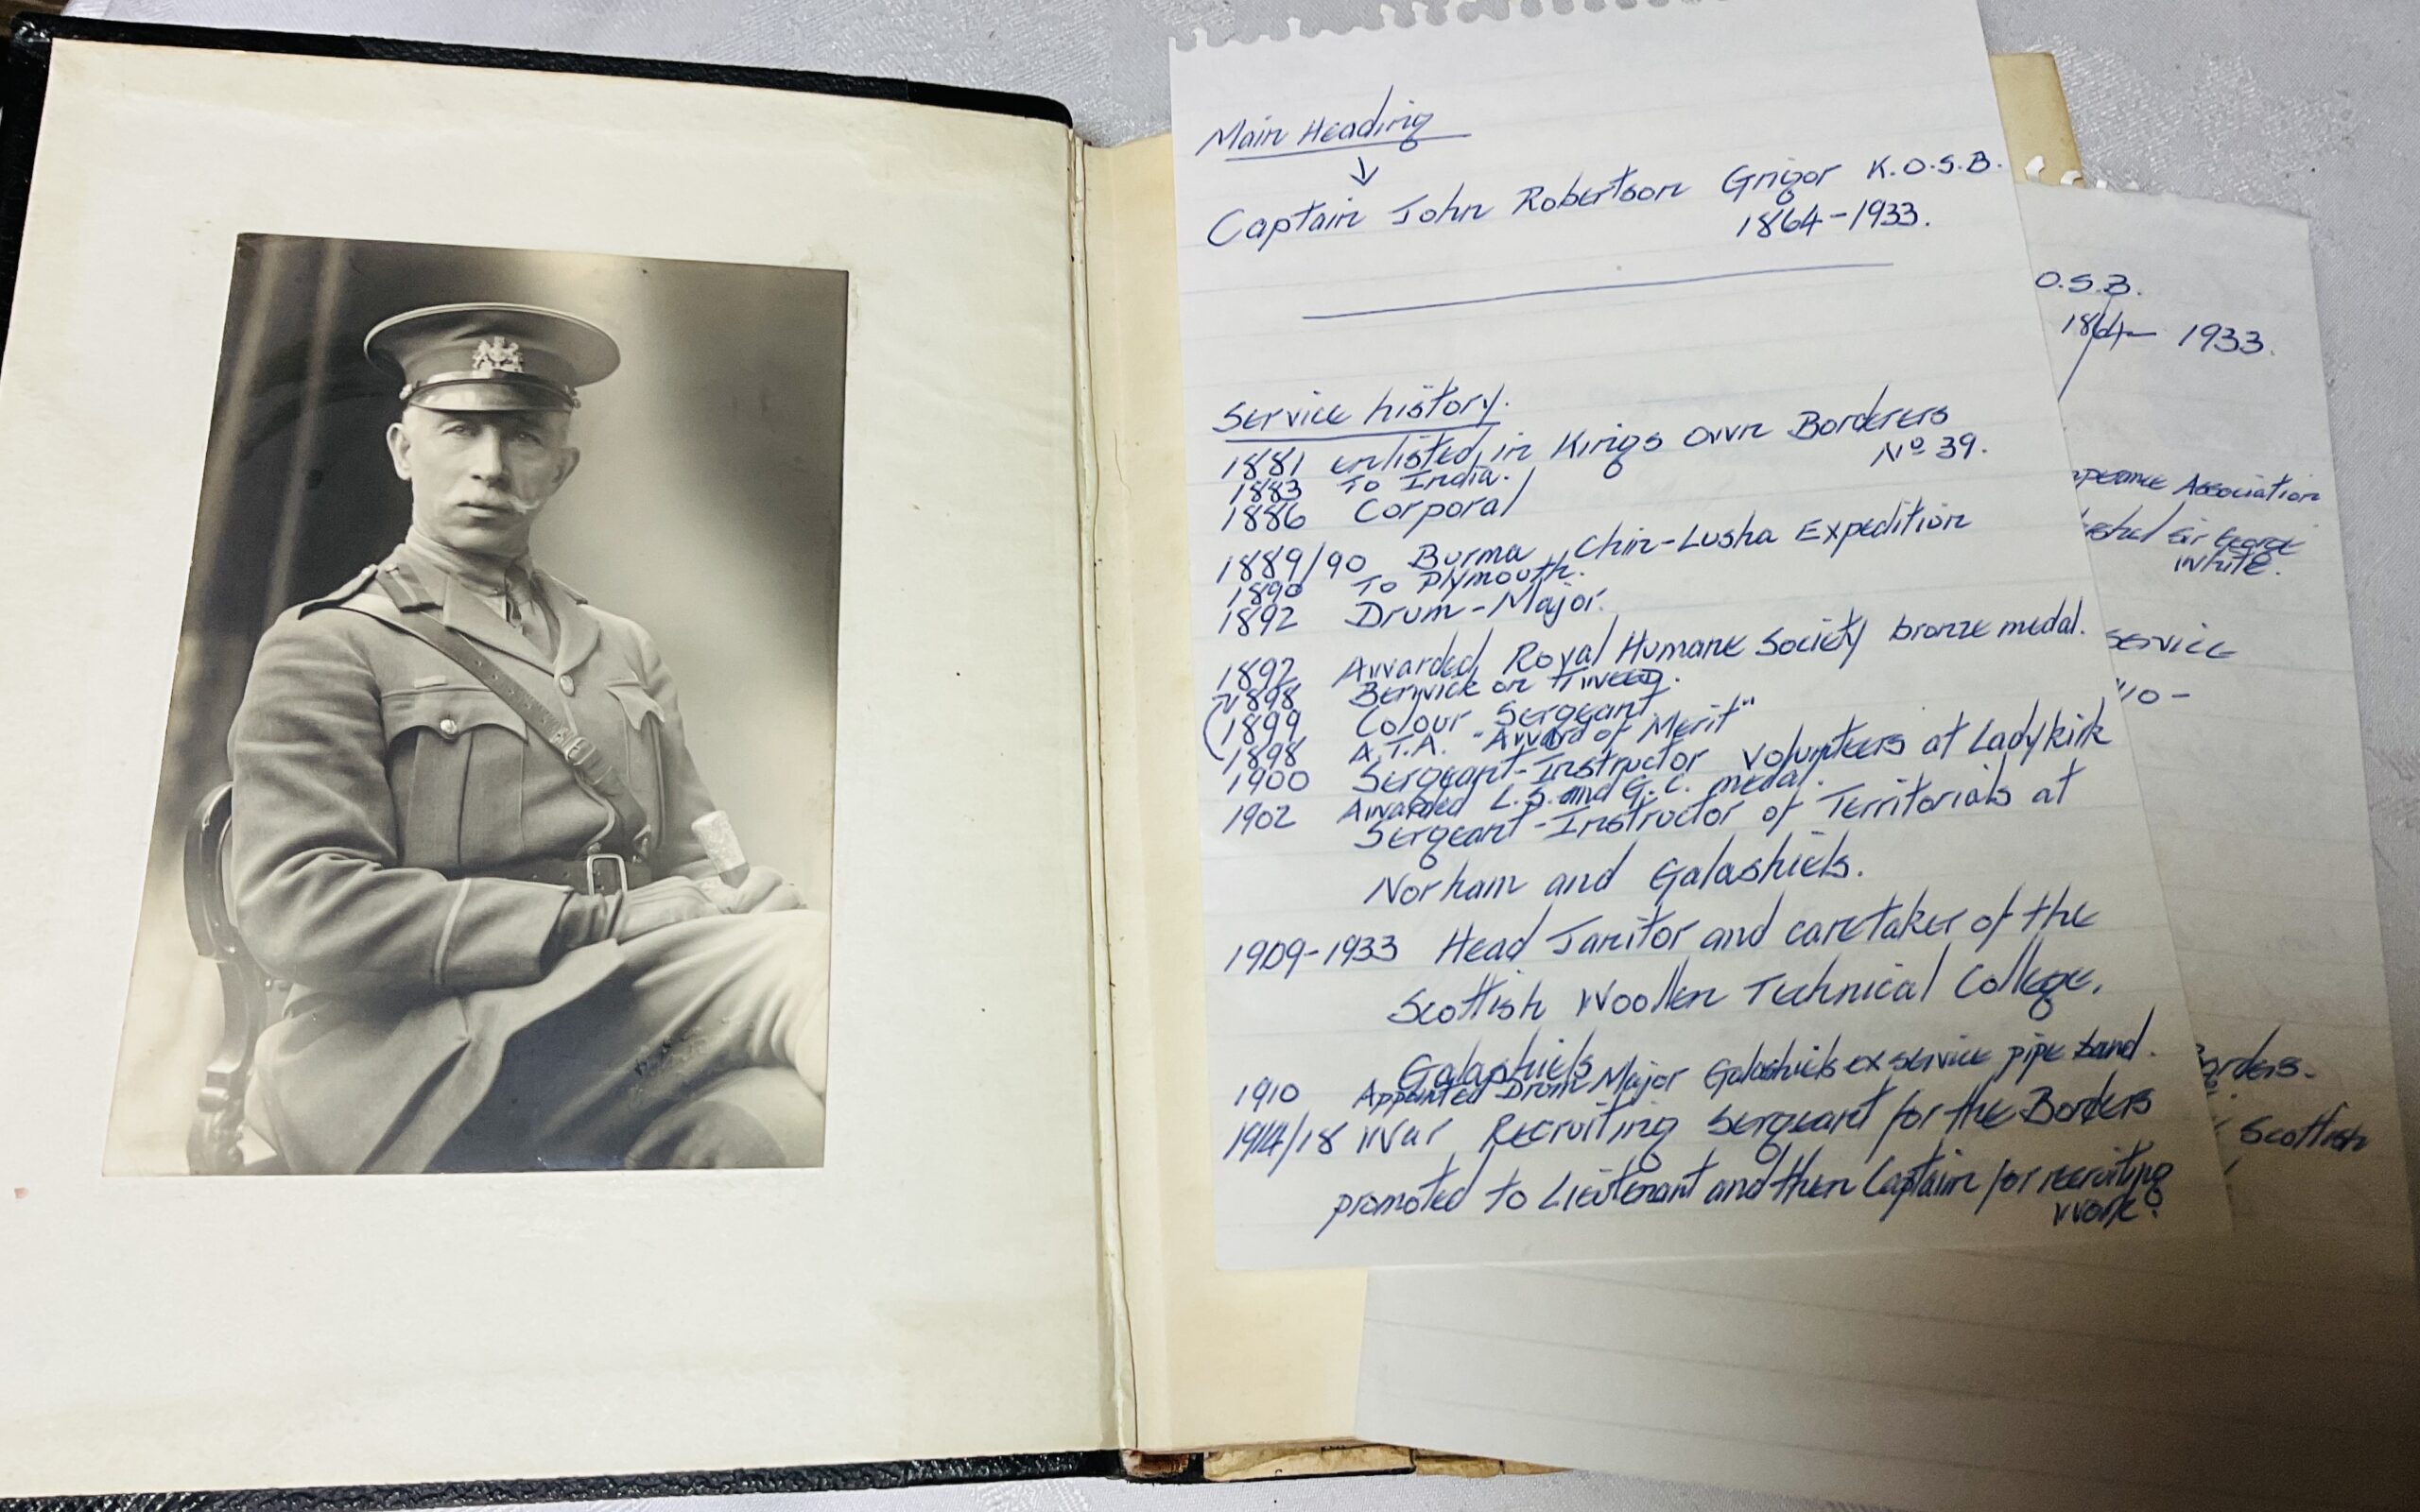 Main Heading
↓
Captain John Robertson Grigor K.O.S.B.
1864-1933.
Service history.
1881 enlisted in Kings Own Borderers
No 39.
1883 To India.
1886 Corporal
1889/90 Burma Chin-Lusha Expedition
1890 To Plymouth.
1892 Drum-Major.
1892 Awarded Royal Humane Society bronze medal.
1898 Berwick on Tweed.
1899 Colour Sergeant
1898 A.T.A. "Award of Merit"
1900 Sergeant-Instructor Volunteers at Ladykirk
1902 Awarded L.S. and G.C. medal.
Sergeant-Instructor of Territorials at
Norham and Galashiels.
1909-1933 Head Janitor and caretaker of the
Scottish Woollen Technical College,
Galashiels
1910 Appointed Drum Major Galashiels ex service pipe band.
1914/18 War Recruiting Sergeant for the Borders
promoted to Lieutenant and then Captain for recruiting
work.
O.S.B.
1864- 1933.
Association
Sir George
White.
service
Scottish